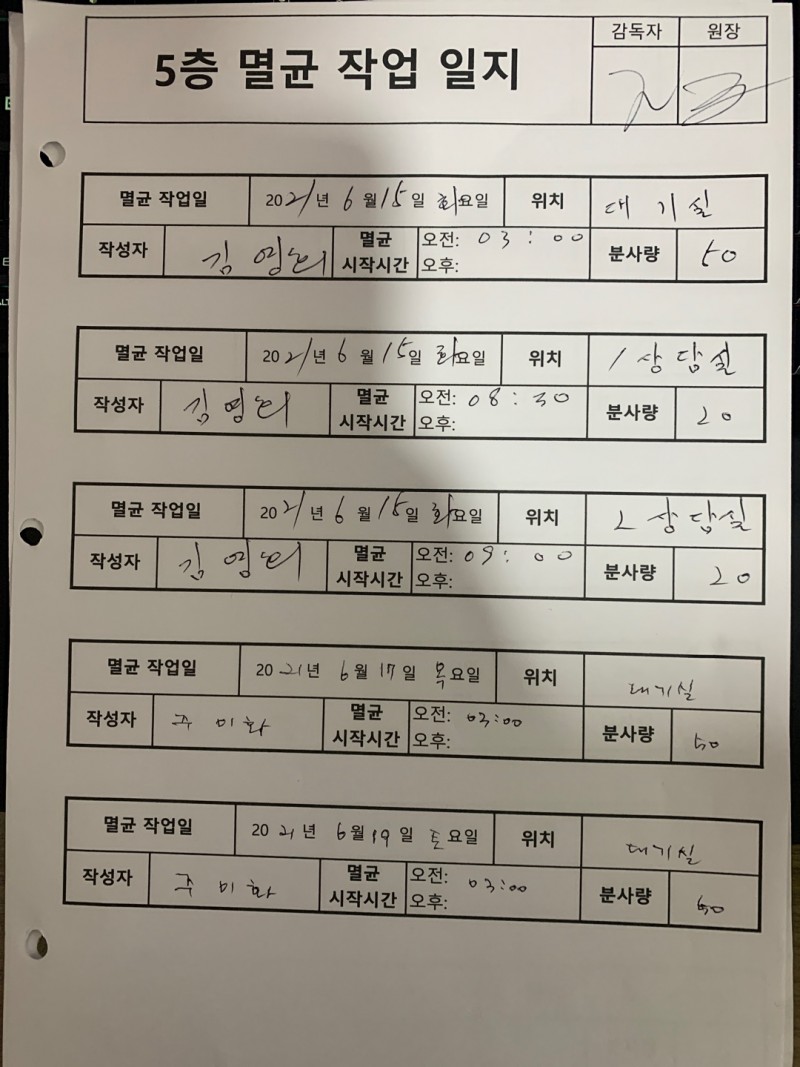 감독자 원장
5층 멸균 작업 일지
멸균 작업일 2021년 6월 15일 화요일 위치 대기실
작성자 김영희 멸균 시작시간 오전: 03:00 오후: 분사량 50
멸균 작업일 2021년 6월 15일 화요일 위치 1상담실
작성자 김영희 멸균 시작시간 오전: 08:30 오후: 분사량 20
멸균 작업일 2021년 6월 15일 화요일 위치 2상담실
작성자 김영희 멸균 시작시간 오전: 09:00 오후: 분사량 20
멸균 작업일 2021년 6월 17일 목요일 위치 대기실
작성자 주미화 멸균 시작시간 오전: 03:00 오후: 분사량 50
멸균 작업일 2021년 6월 19일 토요일 위치 대기실
작성자 주미화 멸균 시작시간 오전: 03:00 오후: 분사량 50